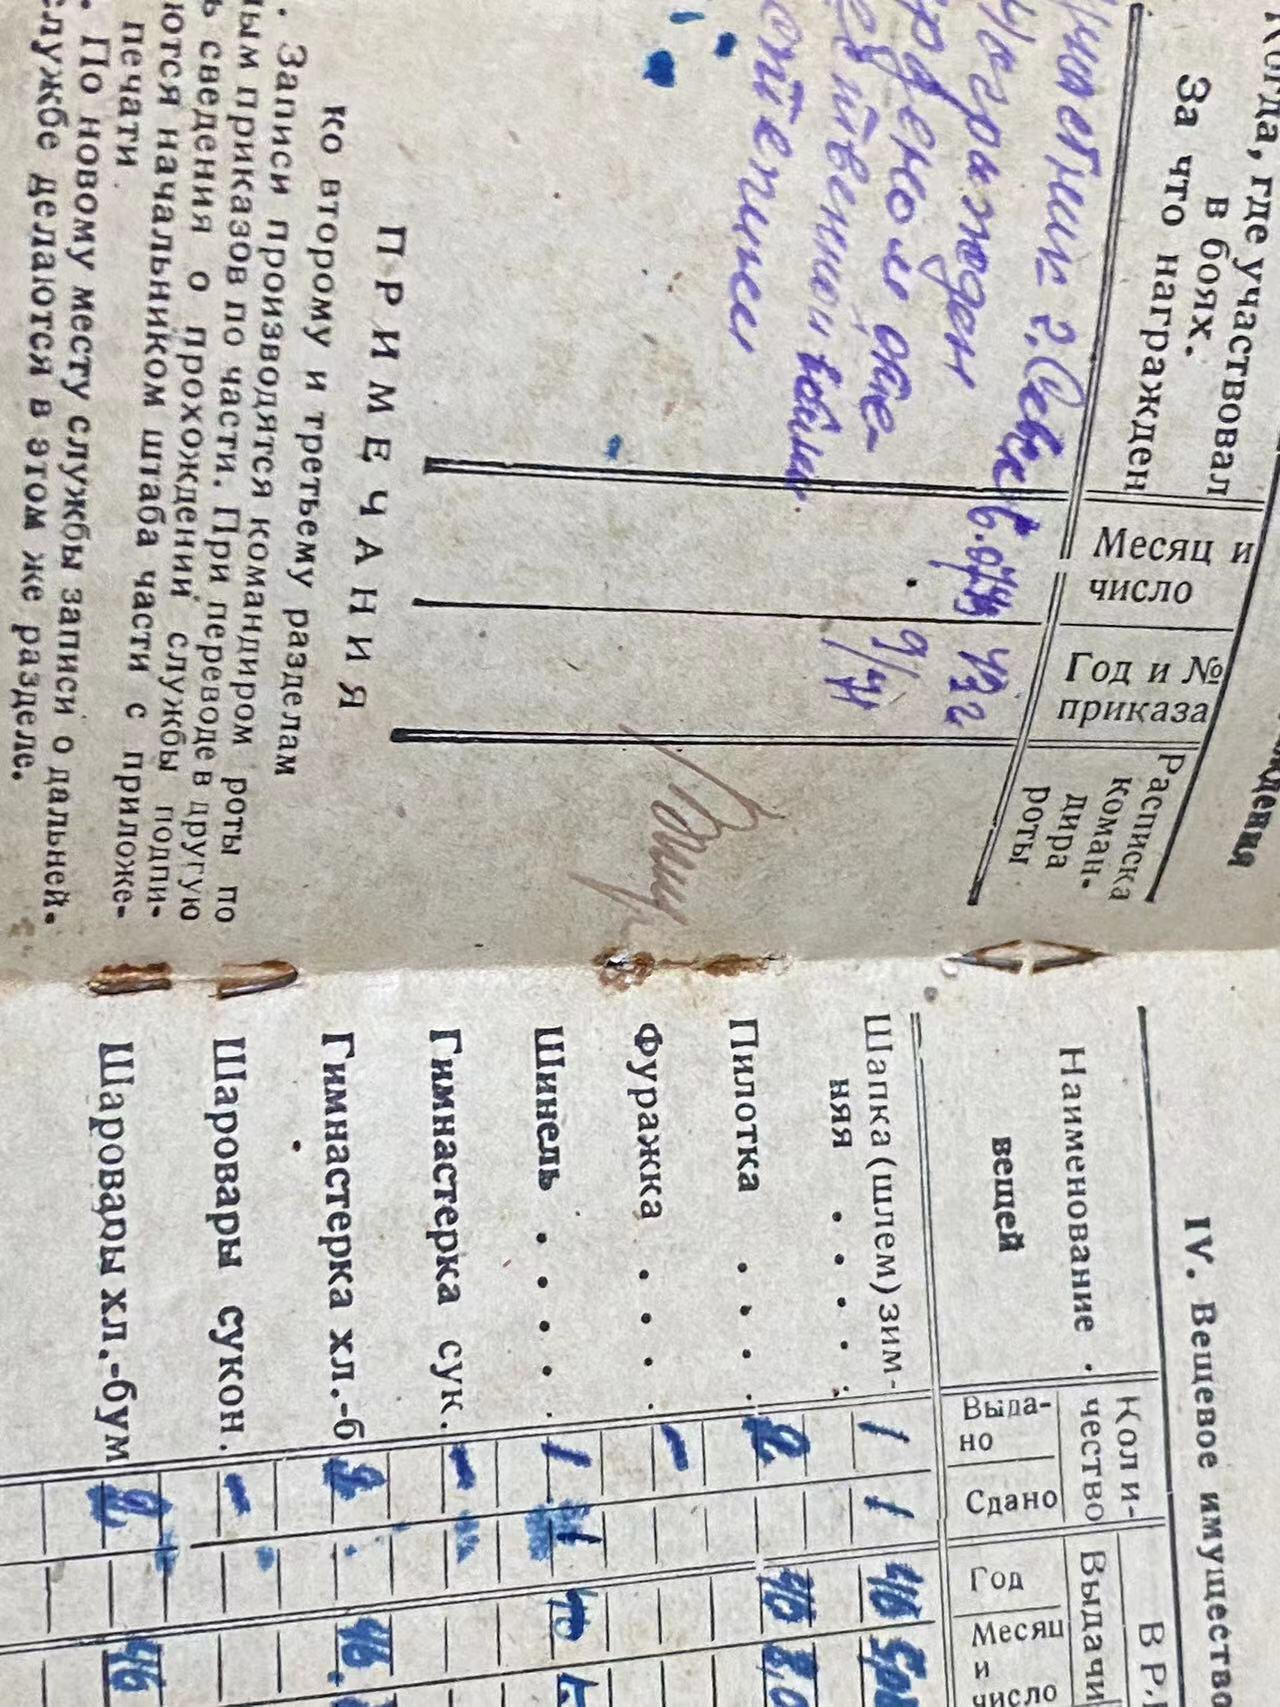 Когда, где участвовал
в боях.
За что награжден
Месяц и
число
Год и №
приказа
Расписка
коман-
дира
роты
ждения
г.
награжден
орденом оте-
войны
степени
43 г
9/н
ПРИМЕЧАНИЯ
ко второму и третьему разделам
. Записи производятся командиром роты по
ным приказов по части. При переводе в другую
ь сведения о прохождении службы подпи-
ются начальником штаба части с приложе-
печати.
. По новому месту службы записи о дальней-
службе делаются в этом же разделе.
IV. Вещевое имущество
Наименование
вещей
Коли-
чество
Выда-
но
Сдано
В Р
Выдачи
Год
Месяц
и
число
Шапка (шлем) зим-
няя . . . . 1 1 46
Пилотка . . . . 2 46
Фуражка . . . . –
Шинель . . . . . 1 1
Гимнастерка сук. –
Гимнастерка хл.-б 2 46
Шаровары сукон. –
Шаровары хл.-бум 2 46